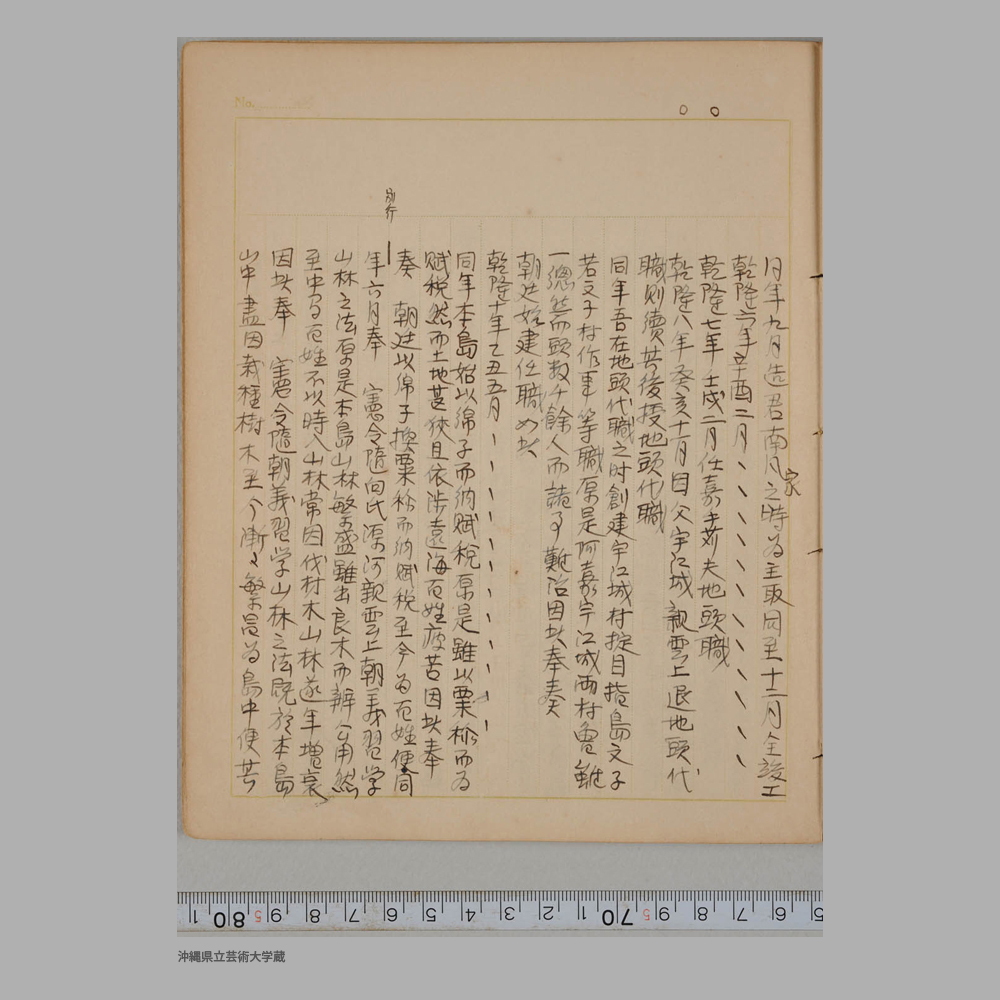 No.
○ ○
同年九月造君南風之時為主取同至十二月全竣工
家
乾隆六年辛酉二月、、、、、、、、、、、、
乾隆七年壬戌二月任嘉手苅夫地頭職
乾隆八年癸亥十一月因父宇江城親雲上退地頭代
職則續其後授地頭代職
同年吾在地頭代職之时創建宇江城村掟目指島文子
若文子村作事等職原是阿嘉宇江城両村疊雖
一總然而頭数千餘人而諸事難治因此奉奏
朝廷始建任職如此
乾隆十年乙丑五月、、、、、、、、、、、
同年本島始以綿子而納賦税原是雖以粟粽而為
賦税然而土地甚狹且依涉遠海百姓疲苦因此奉
奏 朝廷以綿子換粟粽而納賦税至今為百姓便同
別行
年六月奉 憲令隨向氏源河親雲上朝義習学
山林之法原是本島山林繁盛雖出良木而辨公用然
至中乌百姓不以時入山林常因伐材木山林遂年増衰
因此奉 憲令隨朝義習学山林之法既於本島
山中盡因栽種樹木至今漸々繁昌為島中便芳
1 80 5 9 8 7 6 5 4 3 2 1 70 5 9 8 7 6 5
沖縄県立芸術大学蔵